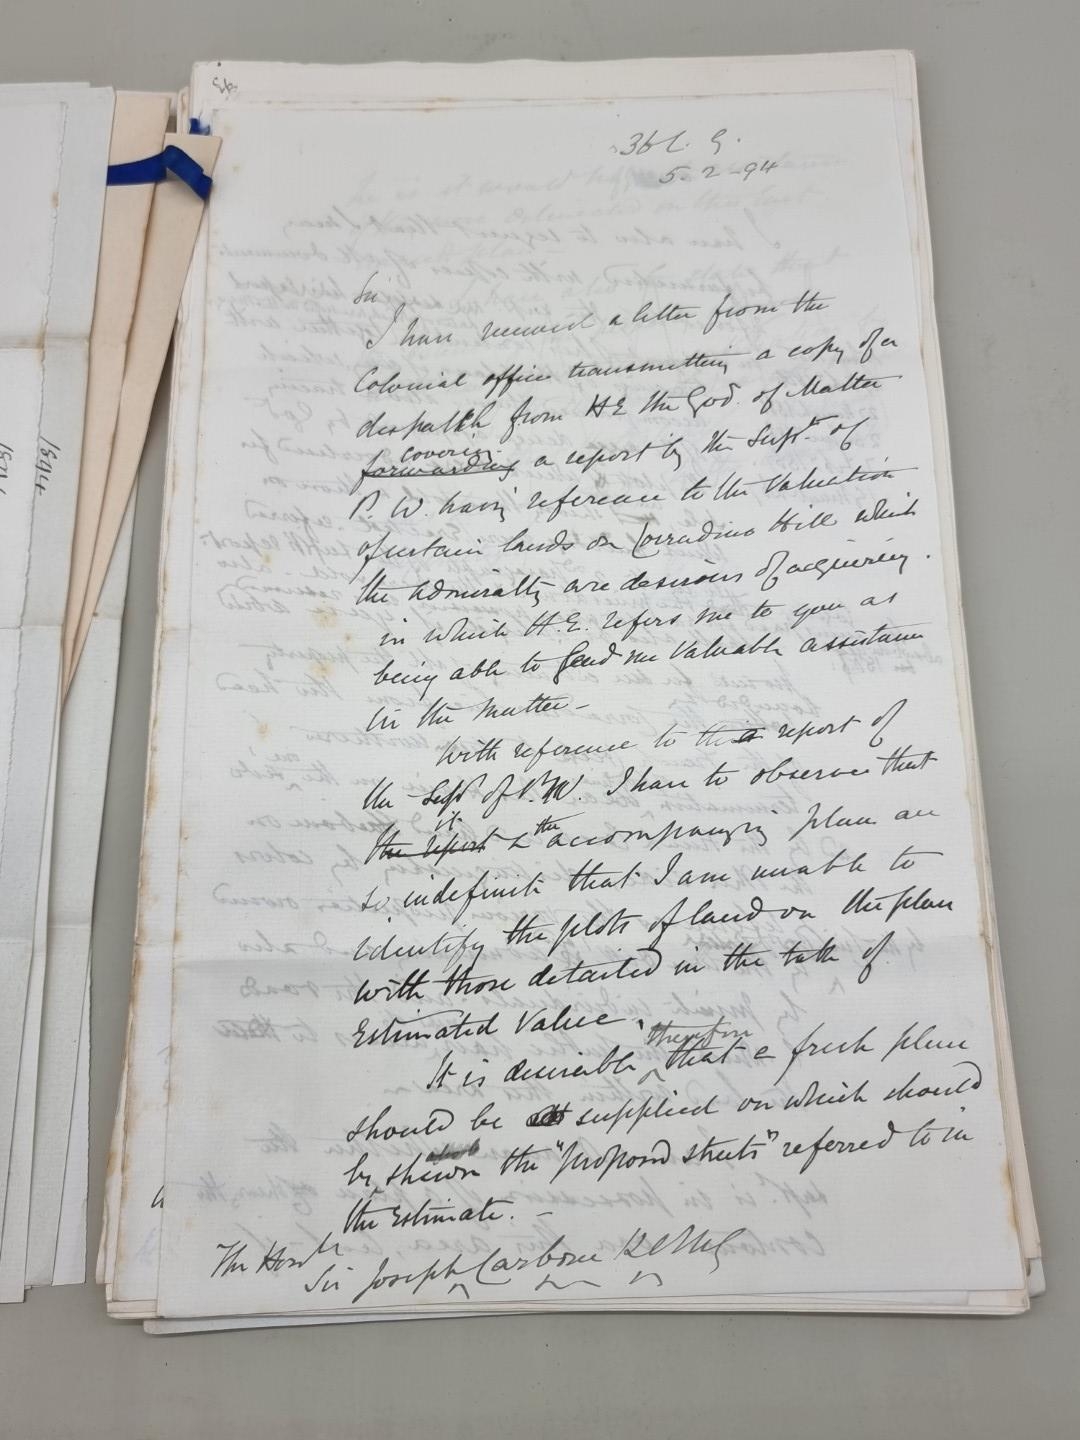 36 L. G.
5.2-94
Sir
I have received a letter from the
Colonial office transmitting a copy of a
despatch from HE the Gov.r of Malta
covering
forwarding a report by the Supt. of
P. W. having reference to the Valuation
of certain lands on Corradino Hill which
the Admiralty are desirous of acquiring.
in which H.E. refers me to you as
being able to lend me valuable assistance
in the matter -
With reference to the report of
the Supt of P.W. I have to observe that
it the
the report & accompanying plan are
so indefinite that I am unable to
identify the plots of land on the plan
with those detailed in the table of
Estimated Value.
therefore
It is desirable that a fresh plan
should be supplied on which should
also
be shewn the "proposed streets" referred to in
the Estimate. -
The Honble
Sir Joseph Carbone KCMG
1894